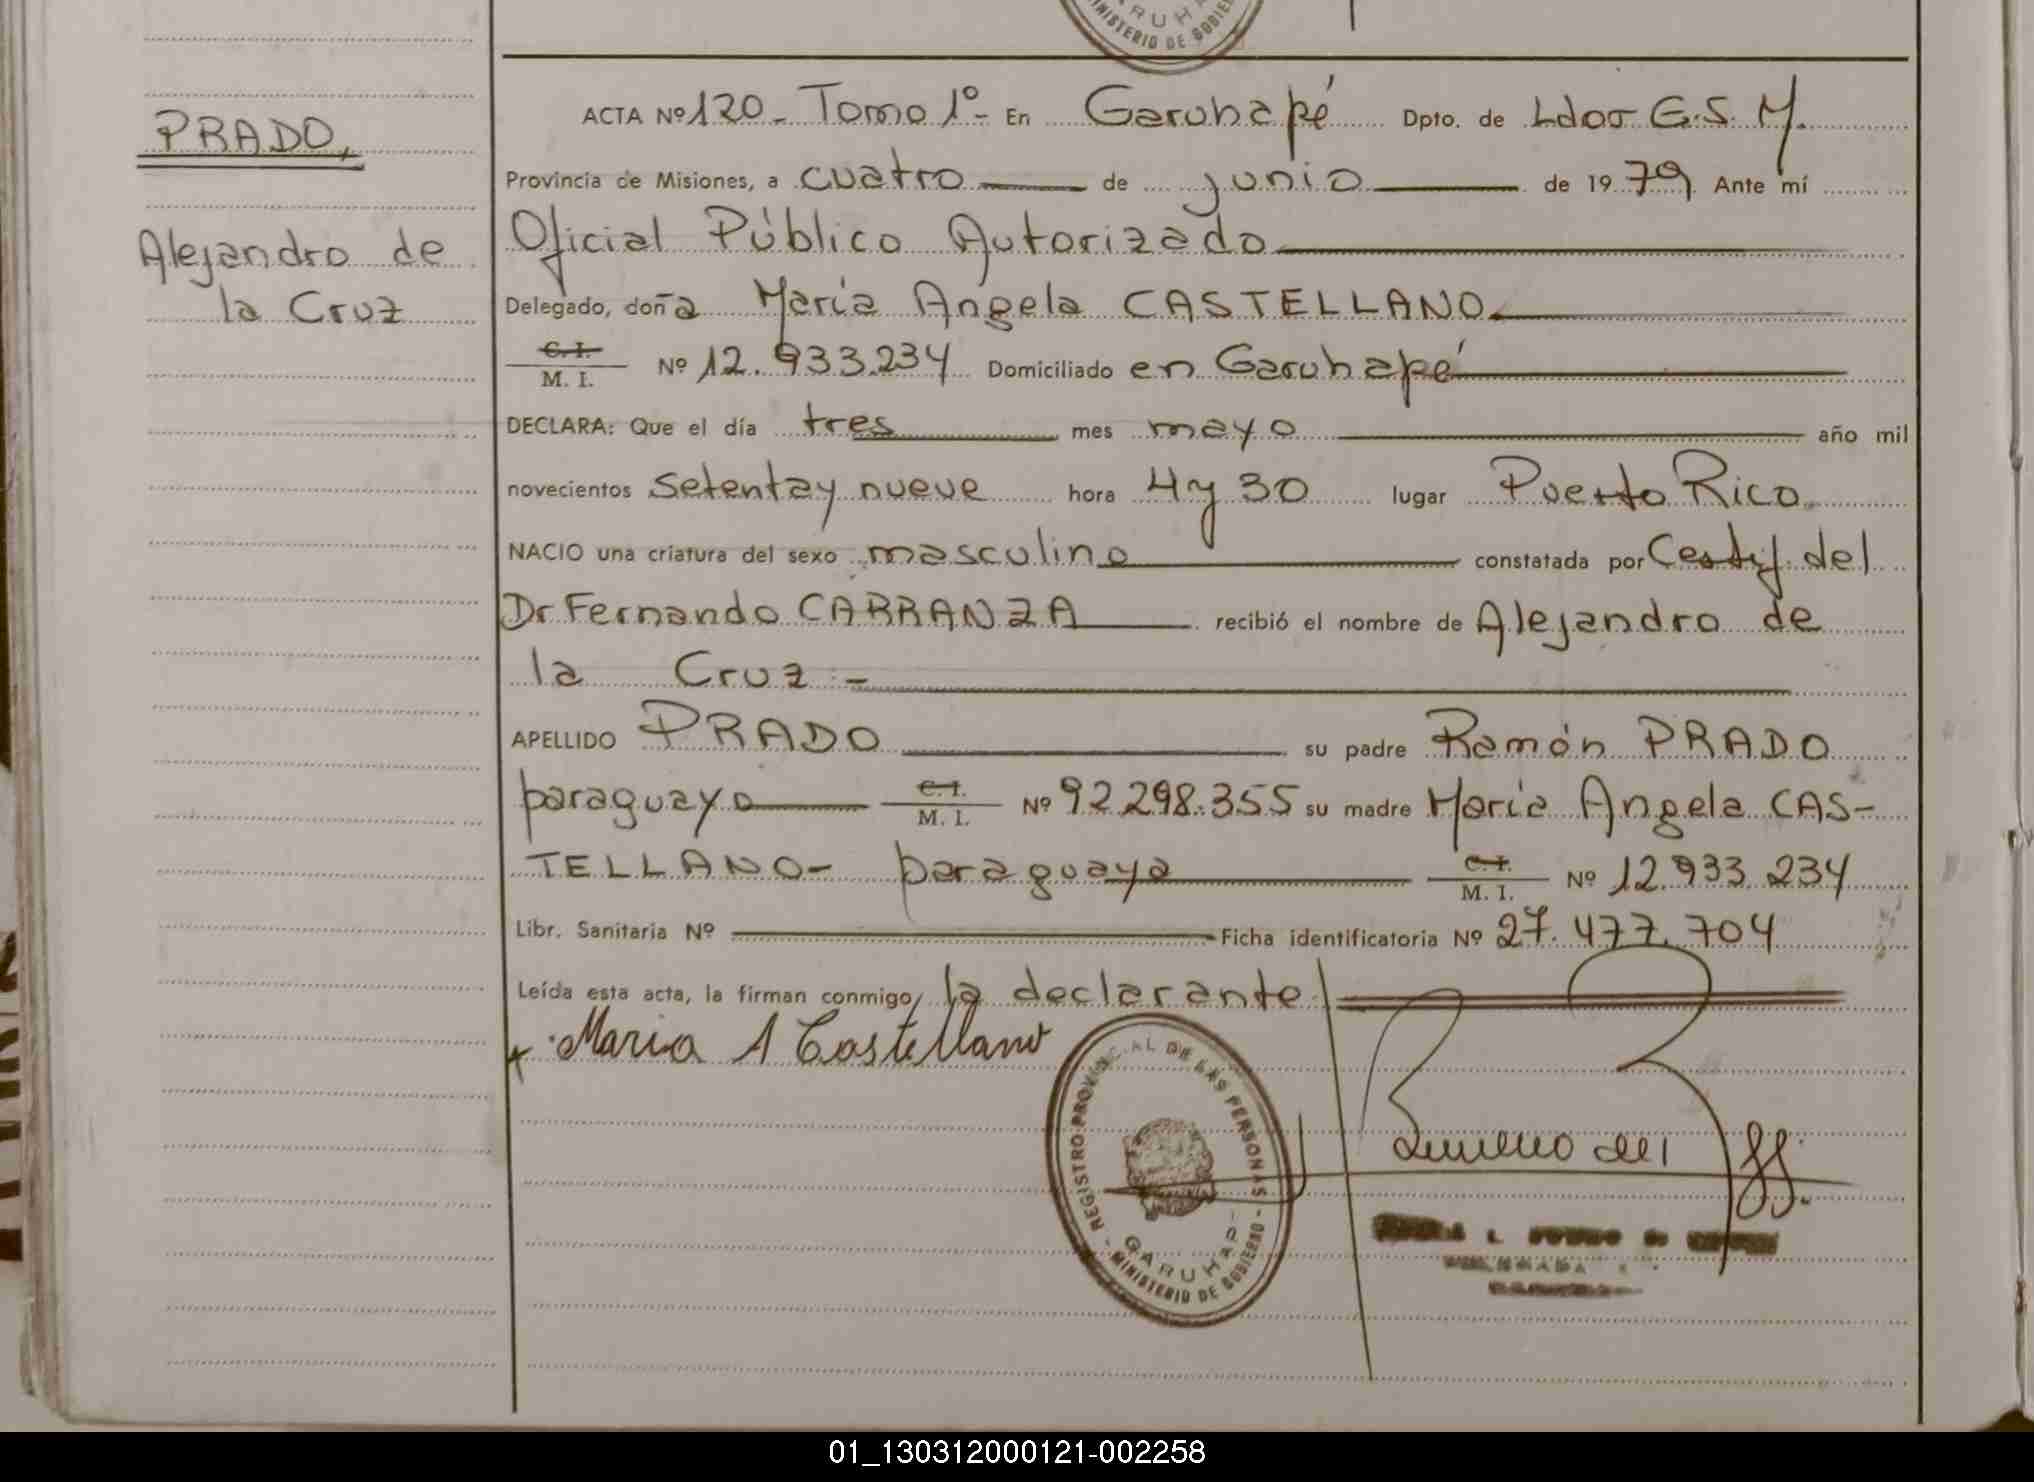 MINISTERIO DE GOBIER
ACTA Nº 120 - Tomo 1º - En Garuhapé Dpto. de Ldor G.S.M.
PRADO,
Provincia de Misiones, a cuatro de junio de 1979 Ante mí
Oficial Público Autorizado
Alejandro de
la Cruz
Delegado, doña María Angela CASTELLANO
C.I.
M. I. Nº 12.933.234 Domiciliado en Garuhapé
DECLARA: Que el día tres mes mayo año mil
novecientos setentay nueve hora 4 y 30 lugar Puerto Rico
NACIO una criatura del sexo masculino constatada por Certif. del
Dr Fernando CARRANZA recibió el nombre de Alejandro de
la Cruz -
APELLIDO PRADO su padre Ramón PRADO
paraguayo C.I.
M. I. Nº 92.298.355 su madre María Angela CAS-
TELLANO - paraguaya C.I.
M. I. Nº 12.933.234
Libr. Sanitaria Nº Ficha identificatoria Nº 27.477.704
Leída esta acta, la firman conmigo, la declarante
Maria A Castellano
REGISTRO PROVINCIAL DE LAS PERSONAS - MINISTERIO DE GOBIERNO -
GARUHAPE
01_130312000121-002258